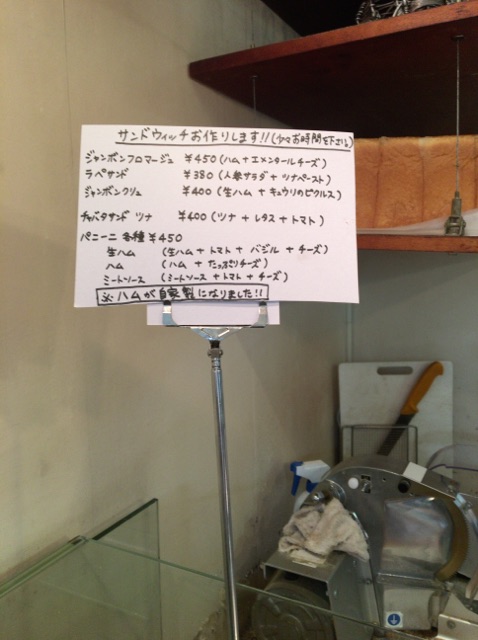 サンドウィッチお作りします!!(少々お時間を下さい)
ジャンボンフロマージュ ¥450(ハム+エメンタールチーズ)
ラペサンド ¥380(人参サラダ+ツナペースト)
ジャンボンクリュ ¥400(生ハム+キュウリのピクルス)
チャバタサンド ツナ ¥400(ツナ+レタス+トマト)
パニーニ 各種 ¥450
生ハム (生ハム+トマト+バジル+チーズ)
ハム (ハム+たっぷりチーズ)
ミートソース (ミートソース+トマト+チーズ)
※ハムが自家製になりました!!